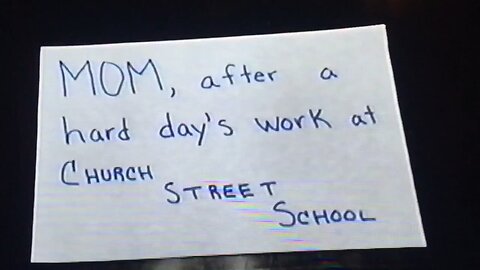 MOM, after a
hard day's work at
CHURCH
STREET
SCHOOL